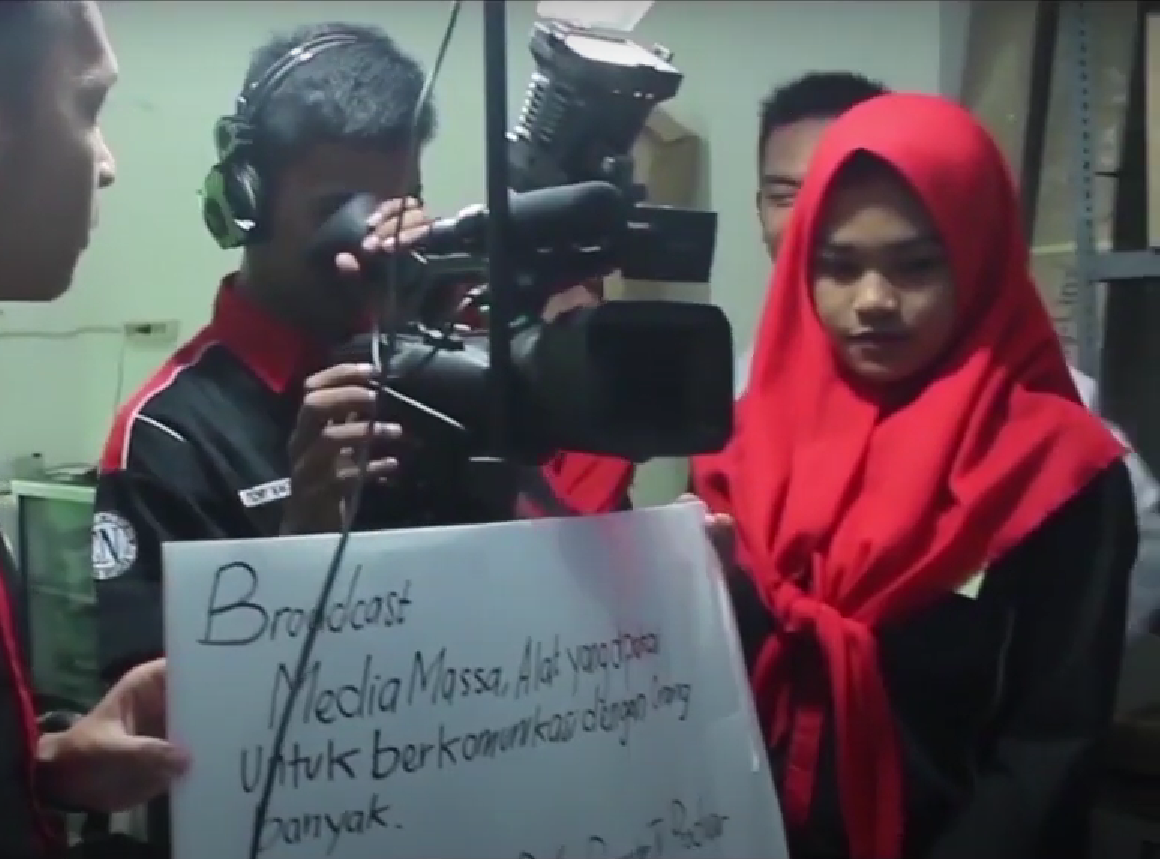 Broadcast
Media Massa, Alat yang dipakai
Untuk berkomunikasi dengan Orang
banyak.